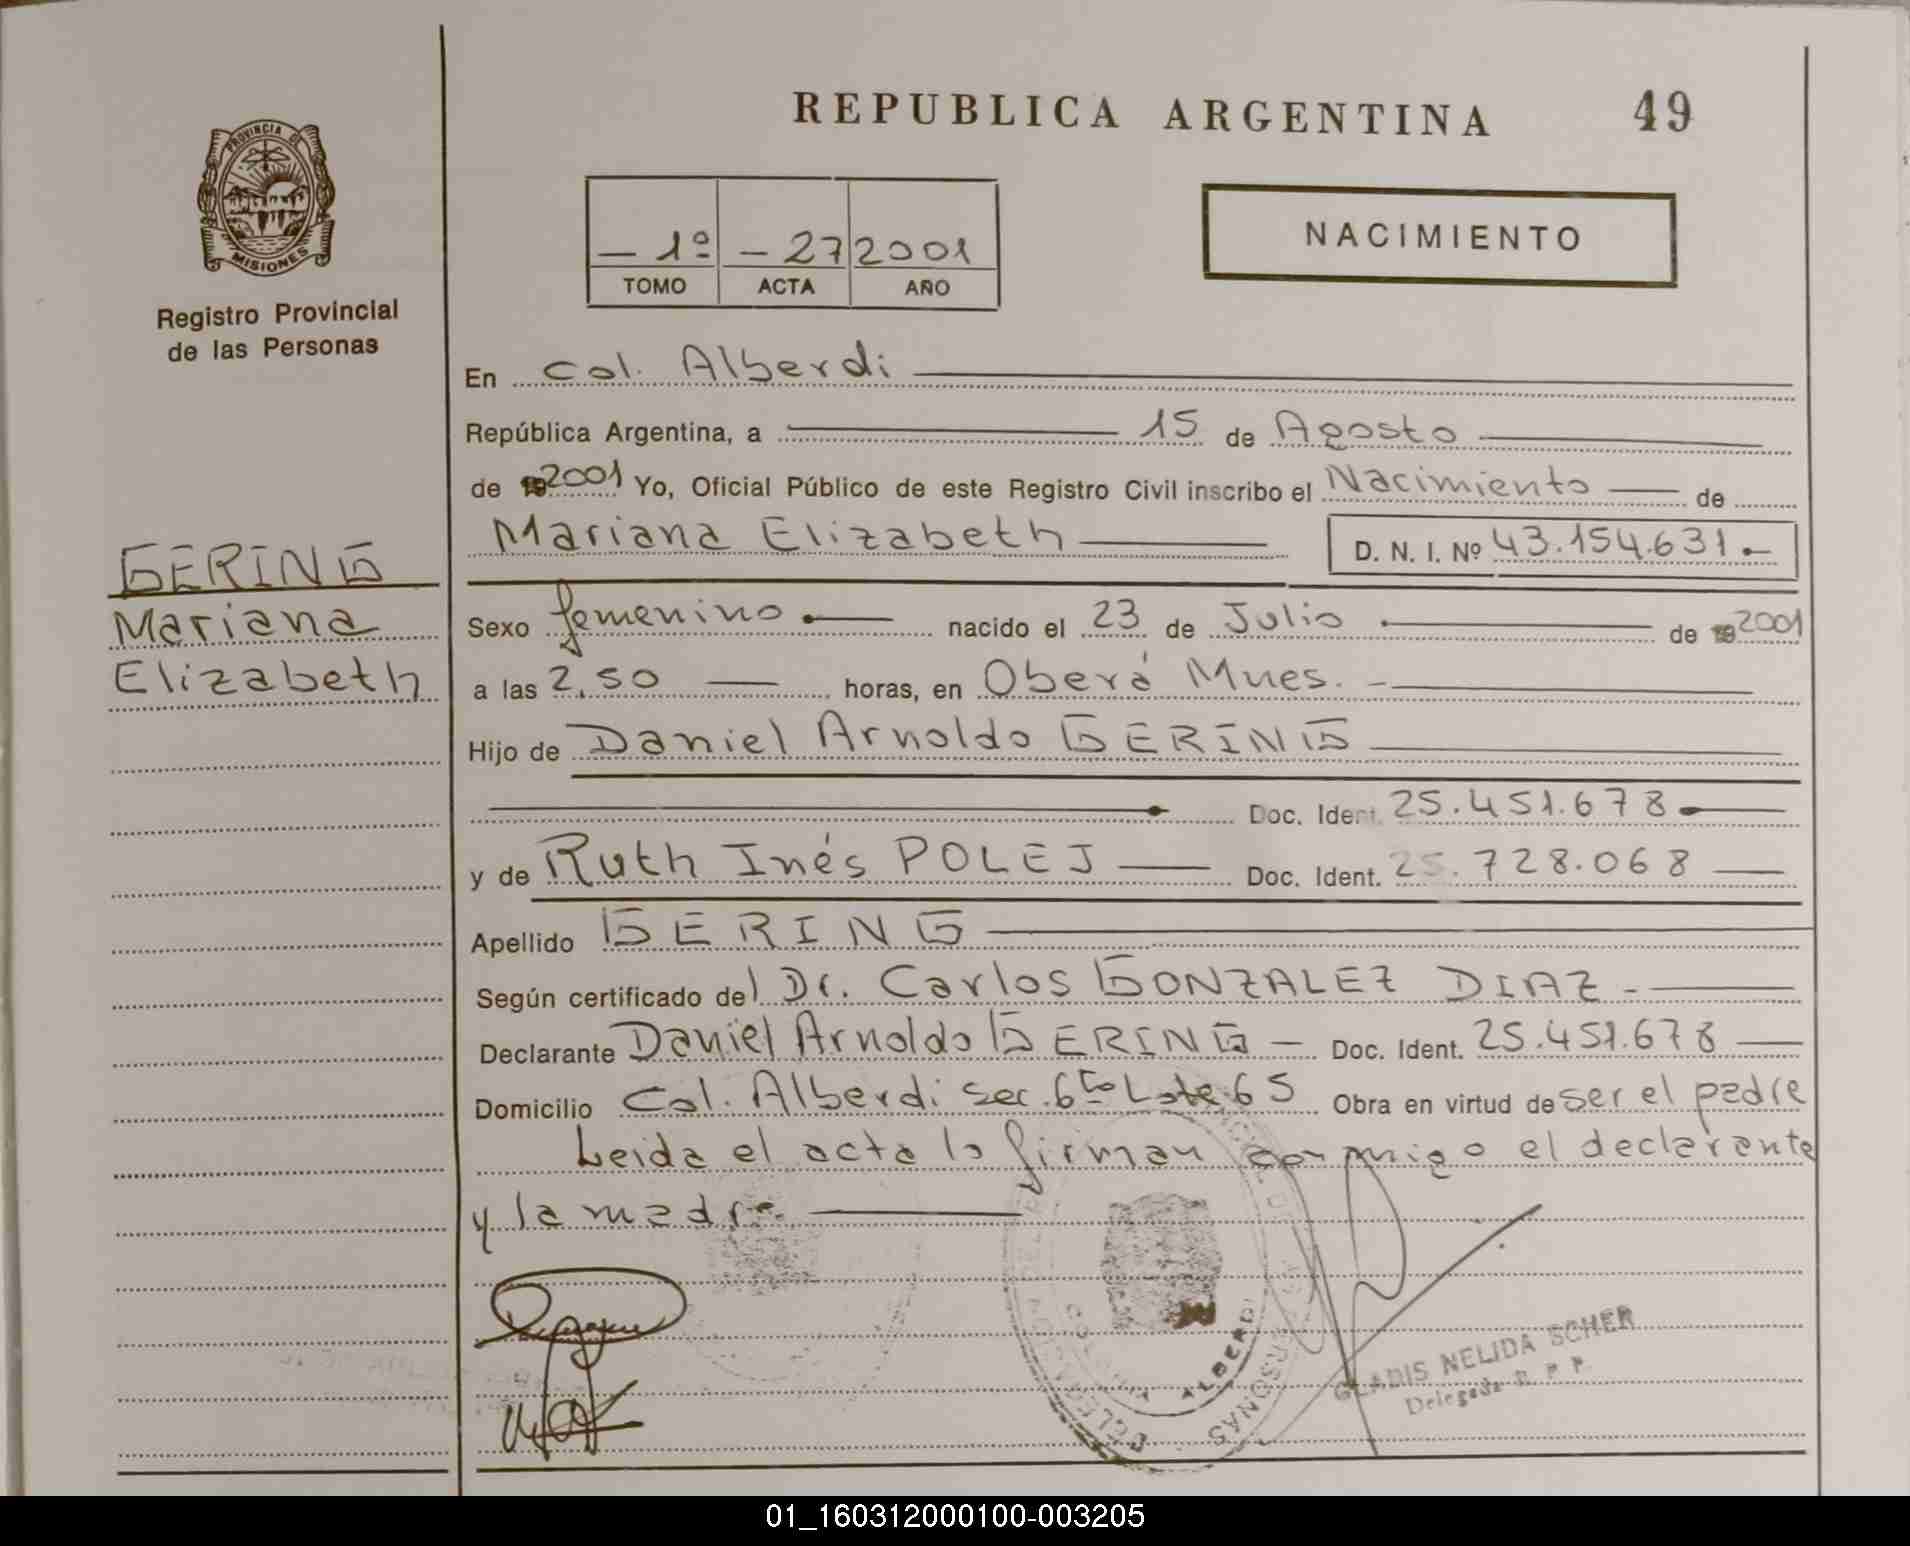 REPUBLICA ARGENTINA 49
PROVINCIA DE
MISIONES
Registro Provincial
de las Personas
- 1º - 27 2001
TOMO ACTA AÑO
NACIMIENTO
En Col. Alberdi
República Argentina, a 15 de Agosto
de 19 2001 Yo, Oficial Público de este Registro Civil inscribo el Nacimiento de
Mariana Elizabeth D. N. I. Nº 43.154.631.-
GERING
Mariana
Elizabeth
Sexo femenino.- nacido el 23 de Julio de 19 2001
a las 2,50 horas, en Oberá Mnes. -
Hijo de Daniel Arnoldo GERING
Doc. Ident. 25.451.678
y de Ruth Inés POLEJ Doc. Ident. 25.728.068
Apellido GERING
Según certificado del Dr. Carlos GONZALEZ DIAZ -
Declarante Daniel Arnoldo GERING - Doc. Ident. 25.451.678
Domicilio Col. Alberdi Sec. 6ta Lote 65 Obra en virtud de ser el padre
Leida el acta lo firman conmigo el declarante
y la madre
ALBERDI
GLADIS NELIDA SCHER
Delegada R. P. P.
01_160312000100-003205